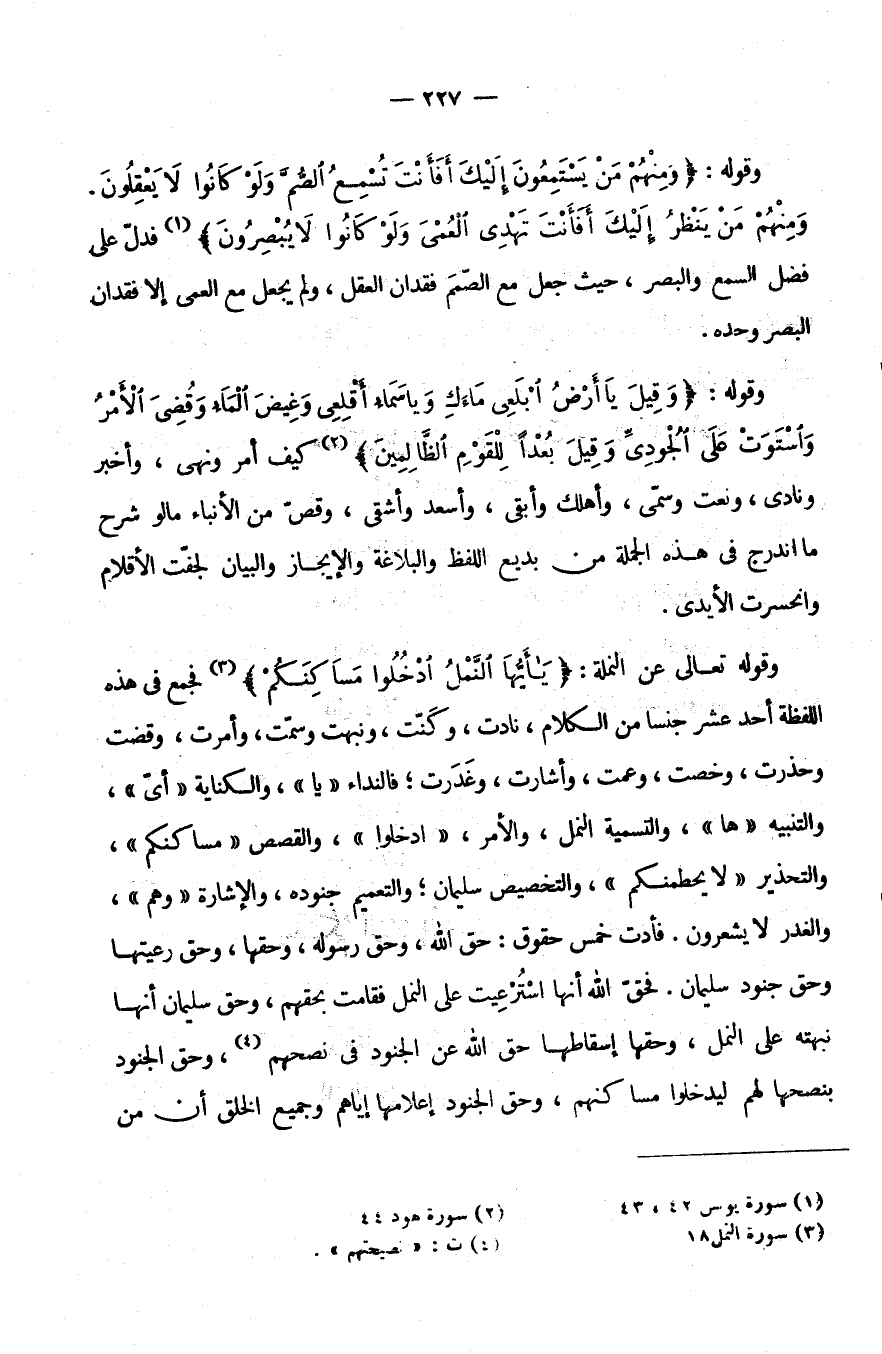 — ٢٢٧ —
وقوله : ﴿ وَمِنْهُمْ مَنْ يَسْتَمِعُونَ إِلَيْكَ أَفَأَنْتَ تُسْمِعُ ٱلصُّمَّ وَلَوْ كَانُوا لَا يَعْقِلُونَ .
وَمِنْهُمْ مَنْ يَنْظُرُ إِلَيْكَ أَفَأَنْتَ تَهْدِى ٱلْعُمْىَ وَلَوْ كَانُوا لَا يُبْصِرُونَ ﴾ (١) فدلّ على
فضل السمع والبصر ، حيث جعل مع الصَّمَمَ فقدان العقل ، ولم يجعل مع العمى إلا فقدان
البصر وحده .
وقوله : ﴿ وَقِيلَ يَاأَرْضُ ٱبْلَعِى مَاءَكِ وَيَاسَمَاءِ أَقْلِعِى وَغِيضَ ٱلْمَاءِ وَقُضِىَ ٱلْأَمْرُ
وَٱسْتَوَتْ عَلَى ٱلْجُودِىِّ وَقِيلَ بُعْدًا لِلْقَوْمِ ٱلظَّالِمِينَ ﴾ (٢) كيف أمر ونهى ، وأخبر
ونادى ، ونعت وسمّى ، وأهلك وأبقى ، وأسعد وأشقى ، وقصّ من الأنباء مالو شرح
ما اندرج فى هذه الجملة من بديع اللفظ والبلاغة والإيجاز والبيان لجفّت الأقلام
وانحسرت الأيدى .
وقوله تعالى عن النملة : ﴿ يَـٰأَيُّهَا ٱلنَّمْلُ ٱدْخُلُوا مَسَاكِنَكُمْ ﴾ (٣) فجمع فى هذه
اللفظة أحد عشر جنسا من الكلام ، نادت ، وكَنَّت ، ونبهت وسمّت ، وأمرت ، وقضت
وحذرت ، وخصت ، وعمت ، وأشارت ، وغَدَرت ؛ فالنداء « يا » ، والكناية « أىّ » ،
والتنبيه « ها » ، والتسمية النمل ، والأمر ، « ادخلوا » ، والقصص « مساكنكم » ،
والتحذير « لا يحطمنكم » ، والتخصيص سليمان ؛ والتعميم جنوده ، والإشارة « وهم » ،
والغدر لا يشعرون . فأدت خمس حقوق : حق الله ، وحق رسوله ، وحقها ، وحق رعيتها
وحق جنود سليمان . فحقّ الله أنها اسْتُرْعِيت على النمل فقامت بحقهم ، وحق سليمان أنها
نبهته على النمل ، وحقها إسقاطها حق الله عن الجنود فى نصحهم (٤) ، وحق الجنود
بنصحها لهم ليدخلوا مساكنهم ، وحق الجنود إعلامها إياهم وجميع الخلق أن من
(١) سورة يونس ٤٢ ، ٤٣
(٢) سورة هود ٤٤
(٣) سورة النمل ١٨
(٤) ت : « نصيحتهم » .